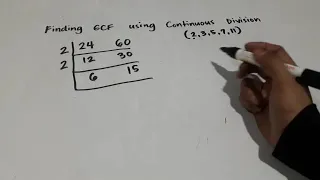 Finding GCF using Continuous Division
(2,3,5,7,11)
2 24 60
2 12 30
6 15